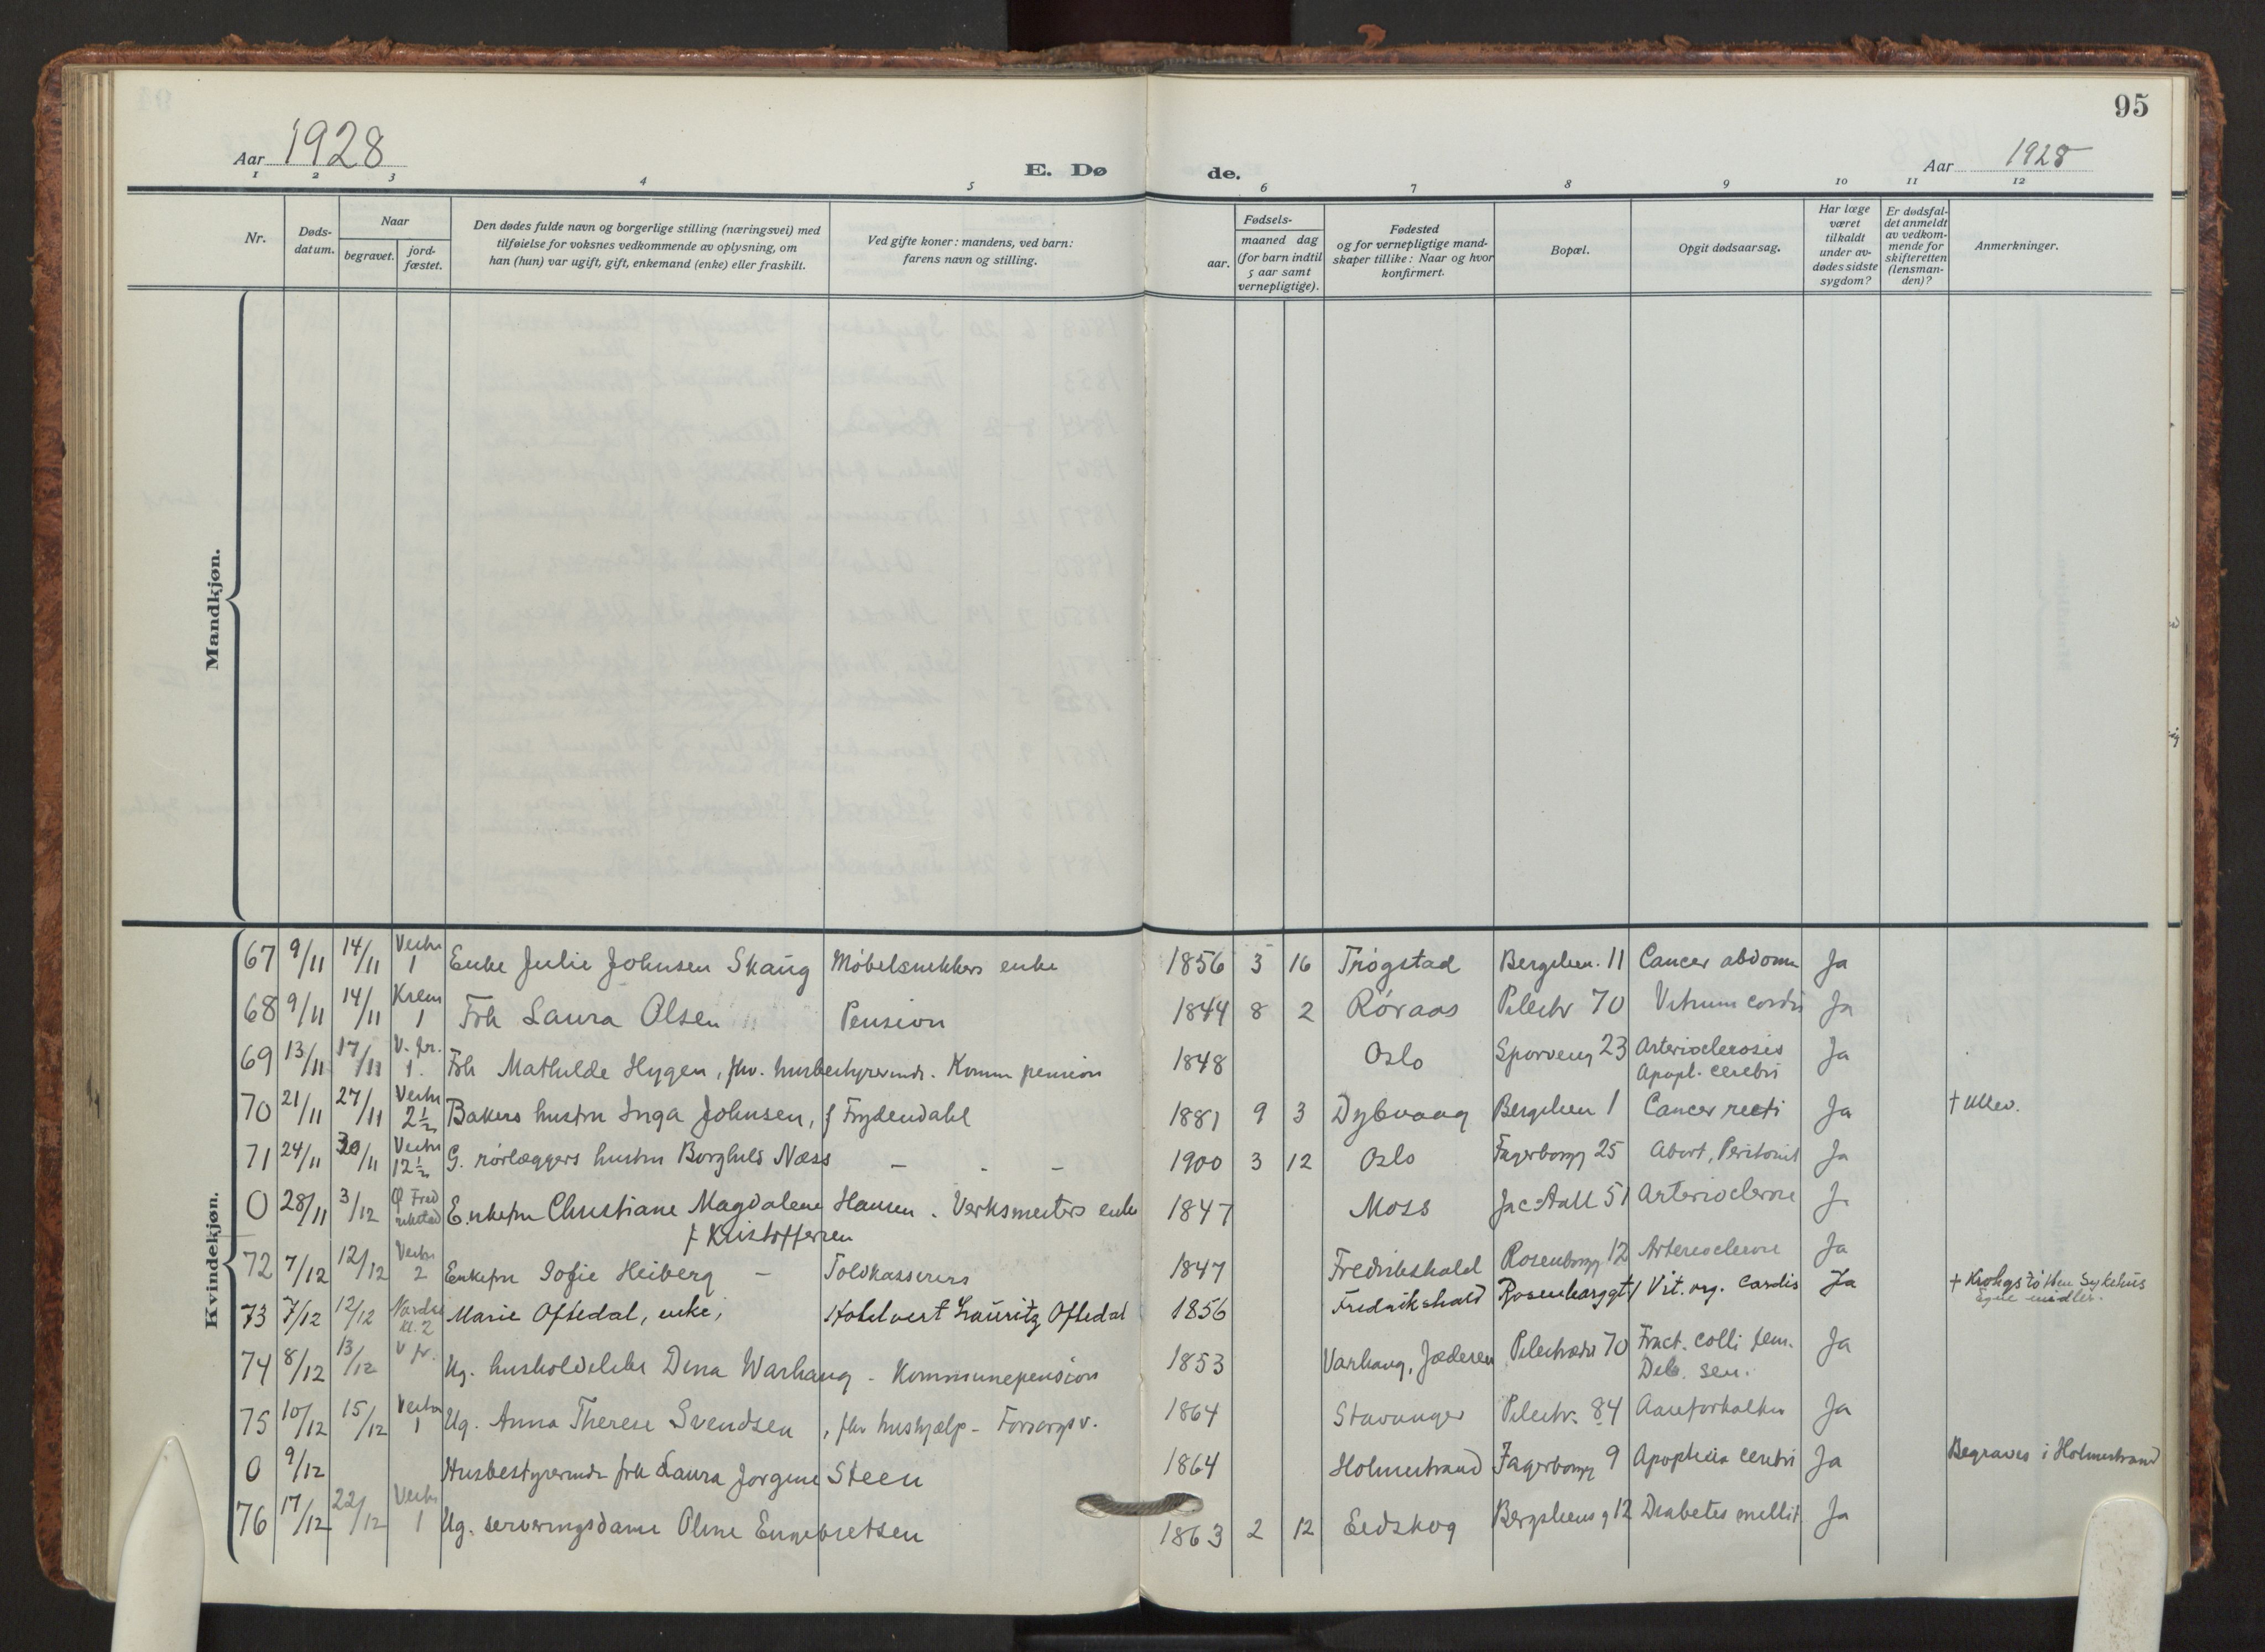 95
Aar 1928
E. Dø
de.
Aar 1928
1 2 3 4 5 6 7 8 9 10 11 12
Nr.
Døds-
datum.
Naar
begravet.
jord-
fæstet.
Den dødes fulde navn og borgerlige stilling (næringsvei) med
tilføielse for voksnes vedkommende av oplysning, om
han (hun) var ugift, gift, enkemand (enke) eller fraskilt.
Ved gifte koner: mandens, ved barn:
farens navn og stilling.
Fødsels-
aar.
maaned dag
(for barn indtil
5 aar samt
vernepligtige).
Fødested
og for vernepligtige mand-
skaper tillike: Naar og hvor
konfirmert.
Bopæl.
Opgit dødsaarsag.
Har læge
været
tilkaldt
under av-
dødes sidste
sygdom?
Er dødsfal-
det anmeldt
av vedkom-
mende for
skifteretten
(lensman-
den)?
Anmerkninger.
Mandkjøn.
Kvindekjøn.
67 9/11 14/11 Vestre 1 Enke Julie Johnsen Skaug Møbelsnekkers enke 1856 3 16 Trøgstad Bergslien. 11 Cancer abdom Ja
68 9/11 14/11 Krem 1 Frk Laura Olsen Pension 1844 8 2 Røraas Pilestr 70 Vitium cordis Ja
69 13/11 17/11 V. fr. 1. Frk Mathilde Hygen, fhv. husbestyrerinde. Komm pension 1848 Oslo Sporveisg 23 Arteriosclerosis
Apopl. cerebri Ja
70 21/11 27/11 Vestre 2½ Bakers hustru Inga Johnsen, f Frydendahl 1881 9 3 Dybvaag Bergslien 1 Cancer recti Ja † Ullev.
71 24/11 30/11 Vestre 12½ G. rørlæggers hustru Borghild Næss - - - 1900 3 12 Oslo Fagerborgg 25 Abort, Peritonit Ja
0 28/11 3/12 Ø Fred
rikstad Enkefru Christiane Magdalene Hansen. Verksmesters enke 1847 Moss Jac Aall 51 Arteriosclerose Ja
f Kristoffersen
72 7/12 12/12 Vestre 2 Enkefru Sofie Heiberg - Toldkasserers 1847 Fredrikshald Rosenborgg 12 Arteriosclerose Ja
73 7/12 12/12 Nordre
kl. 2 Marie Oftedal, enke, Hotelvert Lauritz Oftedal 1856 Fredrikshald Rosenborggt 1 Vit. org. cardis Ja † Krohgstøtten Sykehus
Egne midler.
74 8/12 13/12 V fr. Ug. husholderske Dina Warhaug - Kommunepension 1853 Varhaug, Jæderen Pilestrædet 70 Fract. colli fem.
Deb. sen. Ja
75 10/12 15/12 Vestre 1 Ug. Anna Therese Svendsen, fhv hushjælp - Forsorgsv. 1864 Stavanger Pilestr. 84 Aareforkalkn Ja
0 9/12 Husbestyrerinde frk Laura Jorgine Steen 1864 Holmestrand Fagerborgg 9 Apoplexia cerebri Ja Begraves i Holmestrand
76 17/12 22/12 Vestre 1 Ug. serveringsdame Oline Engebretsen 1863 2 12 Eidskog Bergsliens g 12 Diabetes mellit Ja